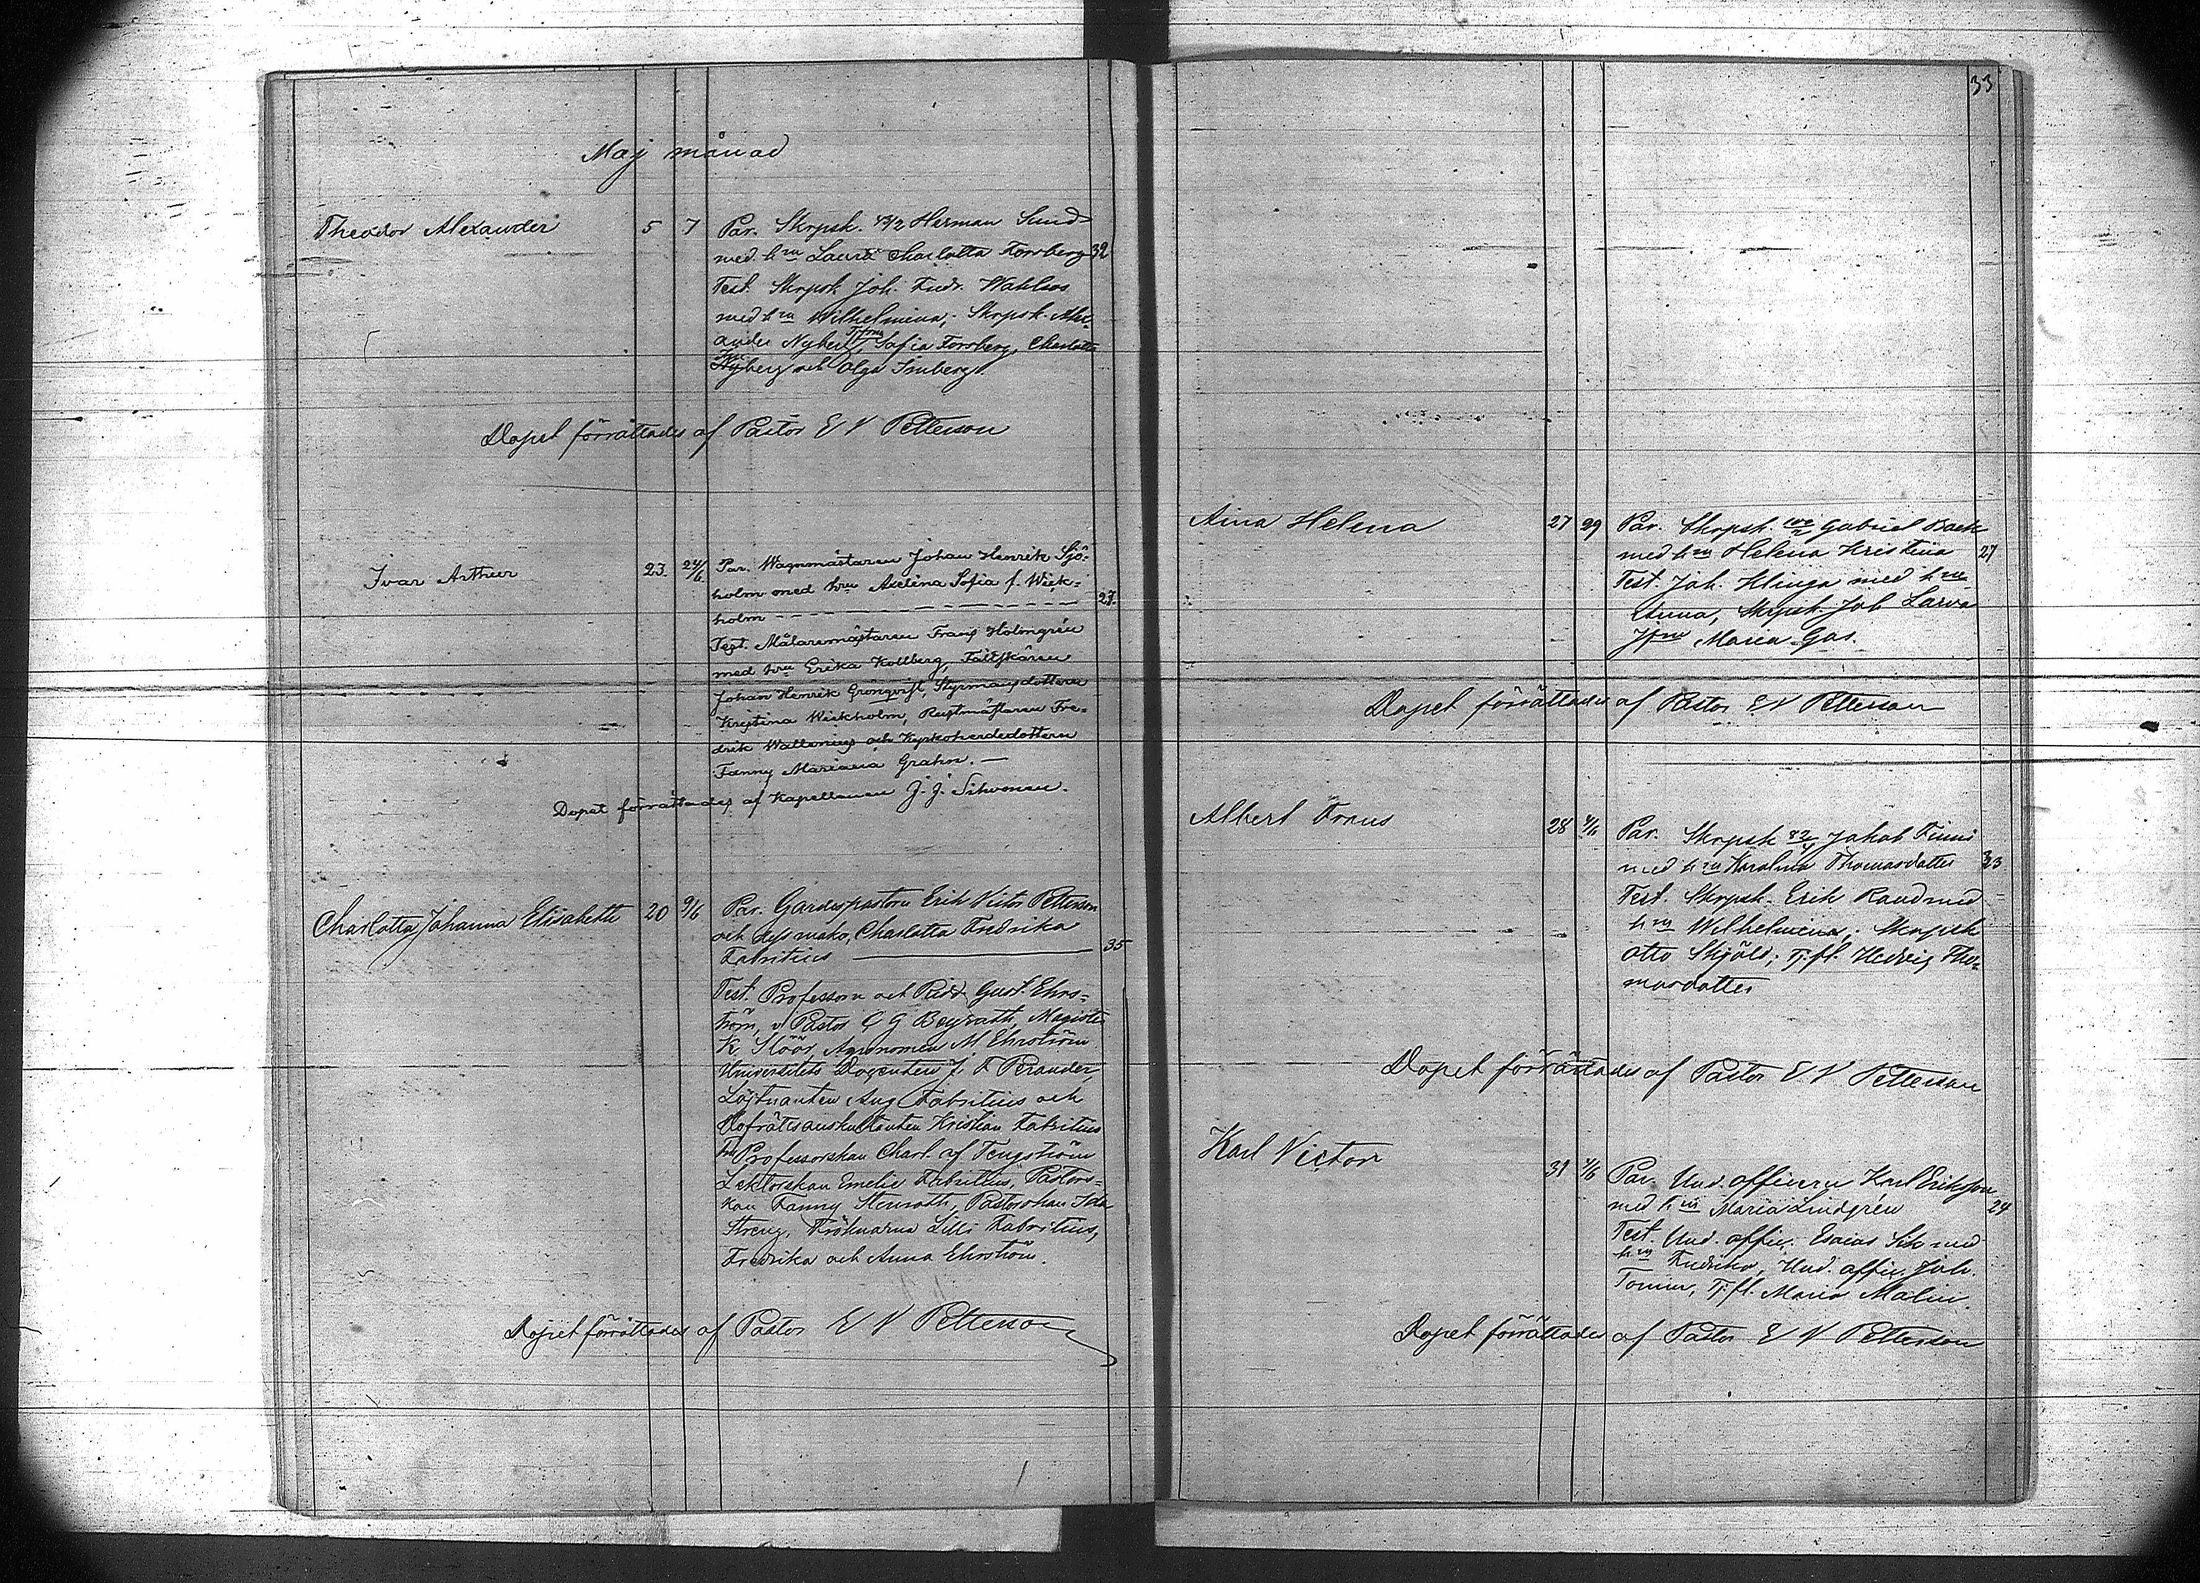 Maj månad
Theodor Alexander 5 7 Par. Skrpsk. Herman Sund
med hru Laura Charlotta Forsberg 32
Test. Skrpsk Joh. Fredr. Wahlroos
med hru Wilhelmina, Skrpsk. Alex-
ander Nyberg, Sofia Forsberg, Charlotta
Nyberg och Olga
Dopet förrättades af Pastor E V Petterson
Ivar Arthur 23. 24/6. Par. Wagnmästaren Johan Henrik Sjö-
holm med hru Axelina Sofia f. Wiek-
holm 27.
Test. Målaremästaren Frans Holmgrén
med hru Erika Kollberg, Fältskären
Johan Henrik Grönqvist, Styrmansdottren
Kristina Wiekholm, Rustmästaren Fre-
drik Wallenius och Kyrkoherdedottren
Fanny Mariana Grahn.
Dopet förrättades af Kapellanen J. J. Sihvonen.
Charlotta Johanna Elisabeth 20 9/6 Par. Gardespastorn Erik Victor Petterson
och dess maka, Charlotta Fredrika
Fabritius 35
Test. Professorn och Gust Ehrs-
tröm, v Pastor C G Beyrath, Magister
K Slöör, Agronomen M Ehrström
Universitets Docenten J. F Perander,
Löjtnanten Aug Fabritius och
Hofrättsauskultanten Kristian Fabritius
Professorskan Charl. af Tengström
Lektorskan Emelie Fabritius, Pastors-
kan Fanny Stenroth, Pastorskan Ida
Streng, Fröknarna Lilli Fabritius,
Fredrika och Anna Ehrström.
Dopet förrättades af Pastor E V Petterson
33
Aina Helena 27 29 Par. Skrpsk. Gabriel Back
med hru Helena Kristina 27
Test. Joh. Klinga med hru
Anna, Skrpsk. Joh Larva
Jfru Maria Gas.
Dopet förrättades af Pastor E V Petterson
Albert Frans 28 Par. Skrpsk Jakob Finni
med hru Karolina Thomasdotter 33
Test. Skrpsk. Erik Rand med
hru Wilhelmina; Skrpsk
Otto Skjöld; Tj.fl. Hedvig Tho-
masdotter
Dopet förrättades af Pastor E V Petterson
Karl Victor 31 Par. Und. officern Karl Eriksson
med hru Maria Lindgrén 24
Test. Und. offic. Esaias med
hru Fredrika, Und. offic. Joh.
Tj.fl. Maria Malin.
Dopet förrättades af Pastor E V Petterson